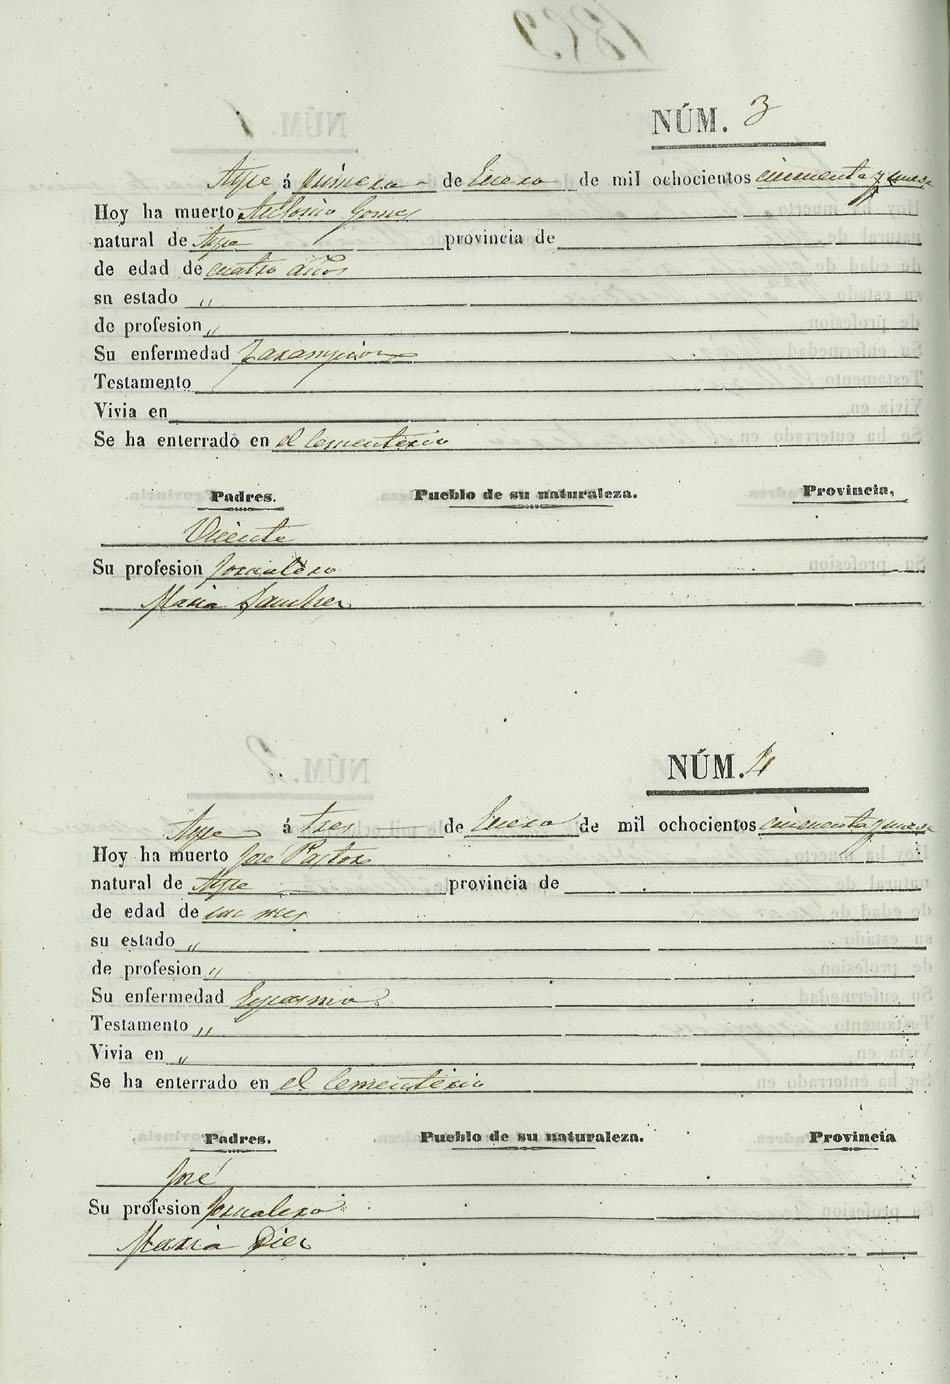 NÚM. 3
Aspe á primero de Enero de mil ochocientos cincuenta y nueve
Hoy ha muerto Antonio Gomes
natural de Aspe provincia de
de edad de cuatro años
sn estado "
de profesion "
Su enfermedad Zarampion
Testamento
Vivia en
Se ha enterrado en el Cementerio
Padres. Pueblo de su naturaleza. Provincia,
Vicente
Su profesion Jornalero
Maria Sanchez
NÚM. 4
Aspe á tres de Enero de mil ochocientos cincuenta y nueve
Hoy ha muerto José Pastor
natural de Aspe provincia de
de edad de un mes
su estado "
de profesion "
Su enfermedad Espasmo
Testamento "
Vivia en "
Se ha enterrado en el Cementerio
Padres. Pueblo de su naturaleza. Provincia
José
Su profesion Jornalero
Maria Diez